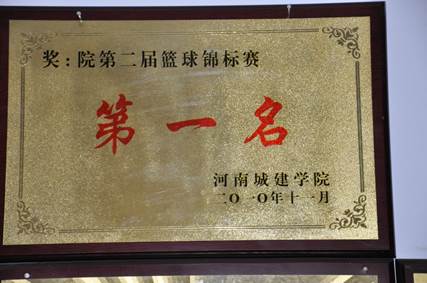 奖：院第二届篮球锦标赛
第一名
河南城建学院
二〇一〇年十一月